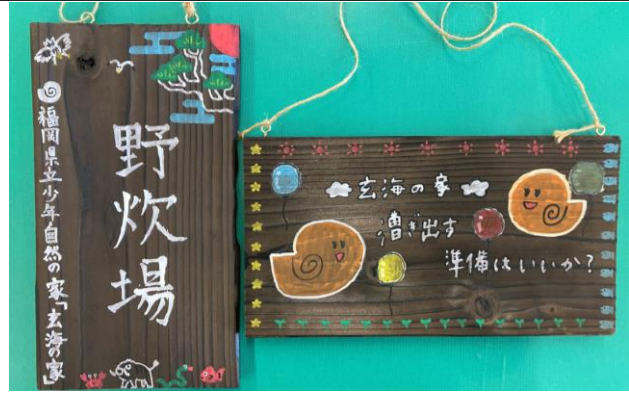 野炊場
福岡県立少年自然の家「玄海の家」
玄海の家
漕ぎ出す
準備はいいか?